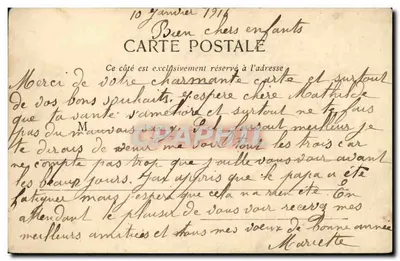 10 Janvier 1916
Bien chers enfants
CARTE POSTALE
Ce côté est exclusivement réservé à l'adresse
Merci de votre charmante carte et surtout
de vos bons souhaits. J'espère chère Mathilde
que ta santé s'améliore et surtout ne te fais
pas du mauvais
M
meilleur je
te dirais de venir me voir tous les trois car
ne compte pas trop que j'aille vous voir avant
les beaux jours. J'ai appris que le papa a été
fatiguer mais j'espère que cela na rien été En
attendant le plaisir de vous voir recevez mes
meilleurs amitiées et tous mes voeux de bonne année
Mariette
CPAPHIL